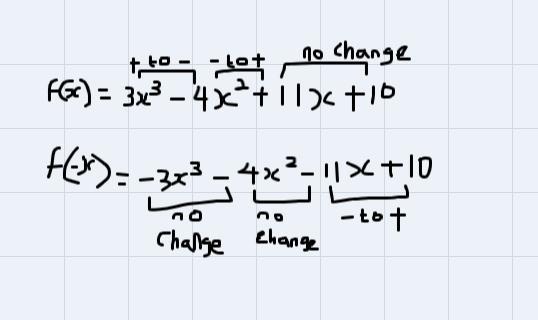 + to - - to + no change
f(x) = 3x³ - 4x² + 11x + 10
f(-x) = -3x³ - 4x² - 11x + 10
no no - to +
change change